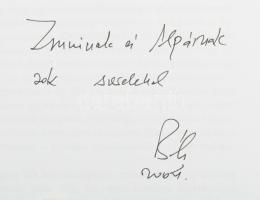 Zsuzsinak és Alpárnak
sok szeretettel
2004.